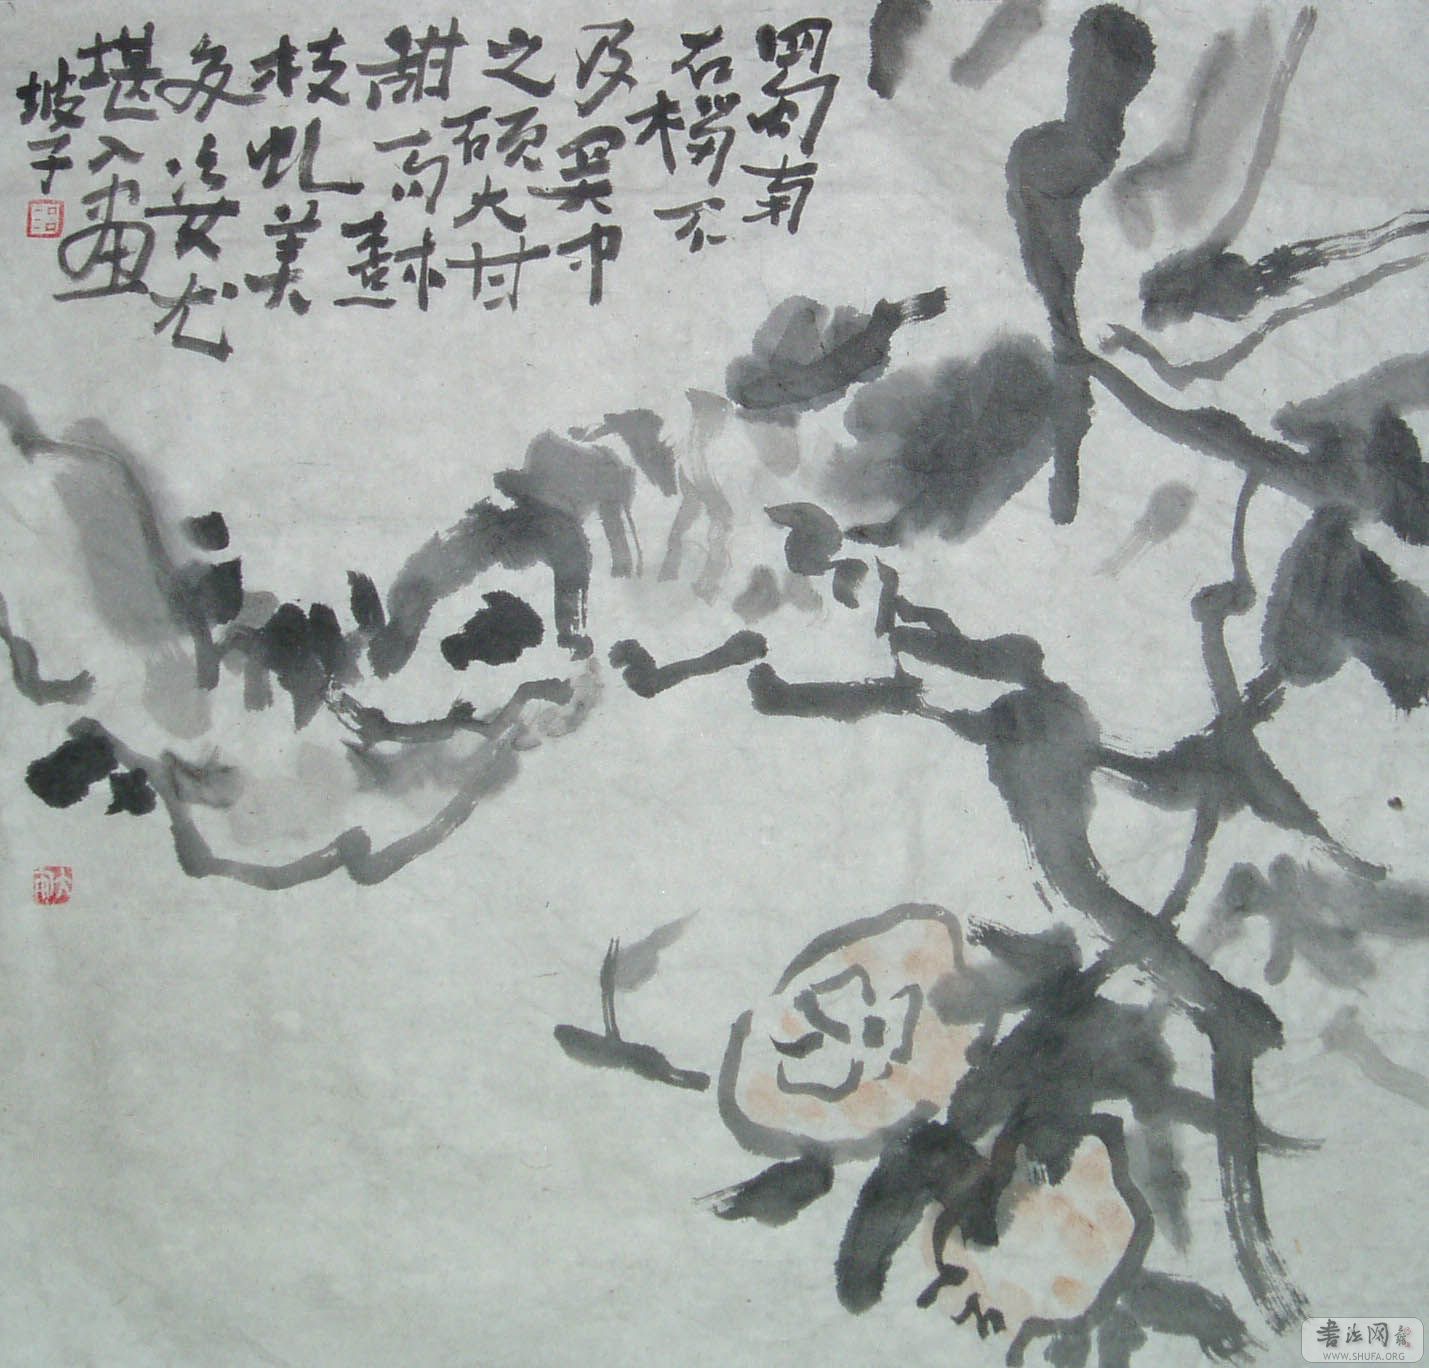 蜀南
石榴不
及吴中
之硕大甘
甜而樹
枝虬美
多姿尤
堪入畫
坡子
書法网
WWW.SHUFA.ORG